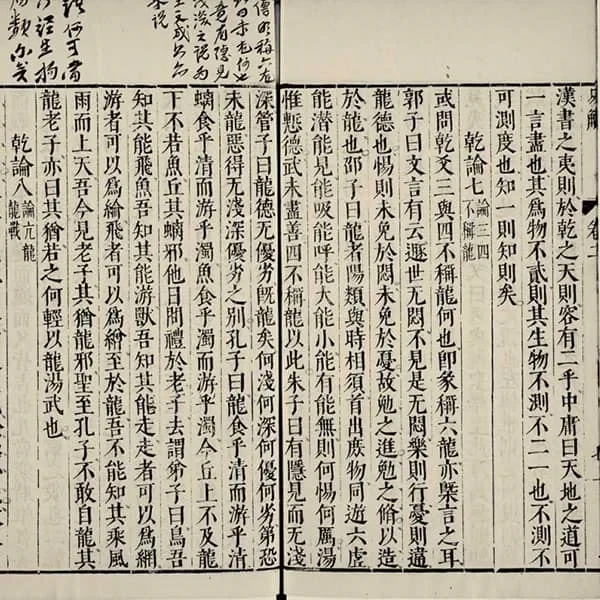 漢書之夷則於乾之天則容有二乎中庸曰天地之道可
一言盡也其爲物不貳則其生物不測不二一也不測不
可測度也知一則知則矣
乾論七 論三四不稱龍
或問乾爻三與四不稱龍何也卽象稱六龍亦槩言之耳
郭子曰文言有云遯世无悶不見是无悶樂則行憂則違
龍德也惕則未免於悶未免於憂故勉之進勉之脩以造
於龍也邵子曰龍者陽類與時相須首出庶物同遊六虛
能潛能見能吸能呼能大能小能有能無則何惕何厲湯
惟慙德武未盡善四不稱龍以此朱子曰有隱見而无淺
深管子曰龍德无優劣旣龍矣何淺何深何優何劣第恐
未龍惡得无淺深優劣之別孔子曰龍食乎清而游乎清
螭食乎清而游乎濁魚食乎濁而游乎濁今丘上不及龍
下不若魚丘其螭邪他日問禮於老子去謂弟子曰鳥吾
知其能飛魚吾知其能游獸吾知其能走走者可以爲網
游者可以爲綸飛者可以爲矰至於龍吾不能知其乘風
雨而上天吾今見老子其猶龍邪聖至孔子不敢自龍其
龍老子亦曰其猶若之何輕以龍湯武也
乾論八 論亢龍龍戰
易解 卷二